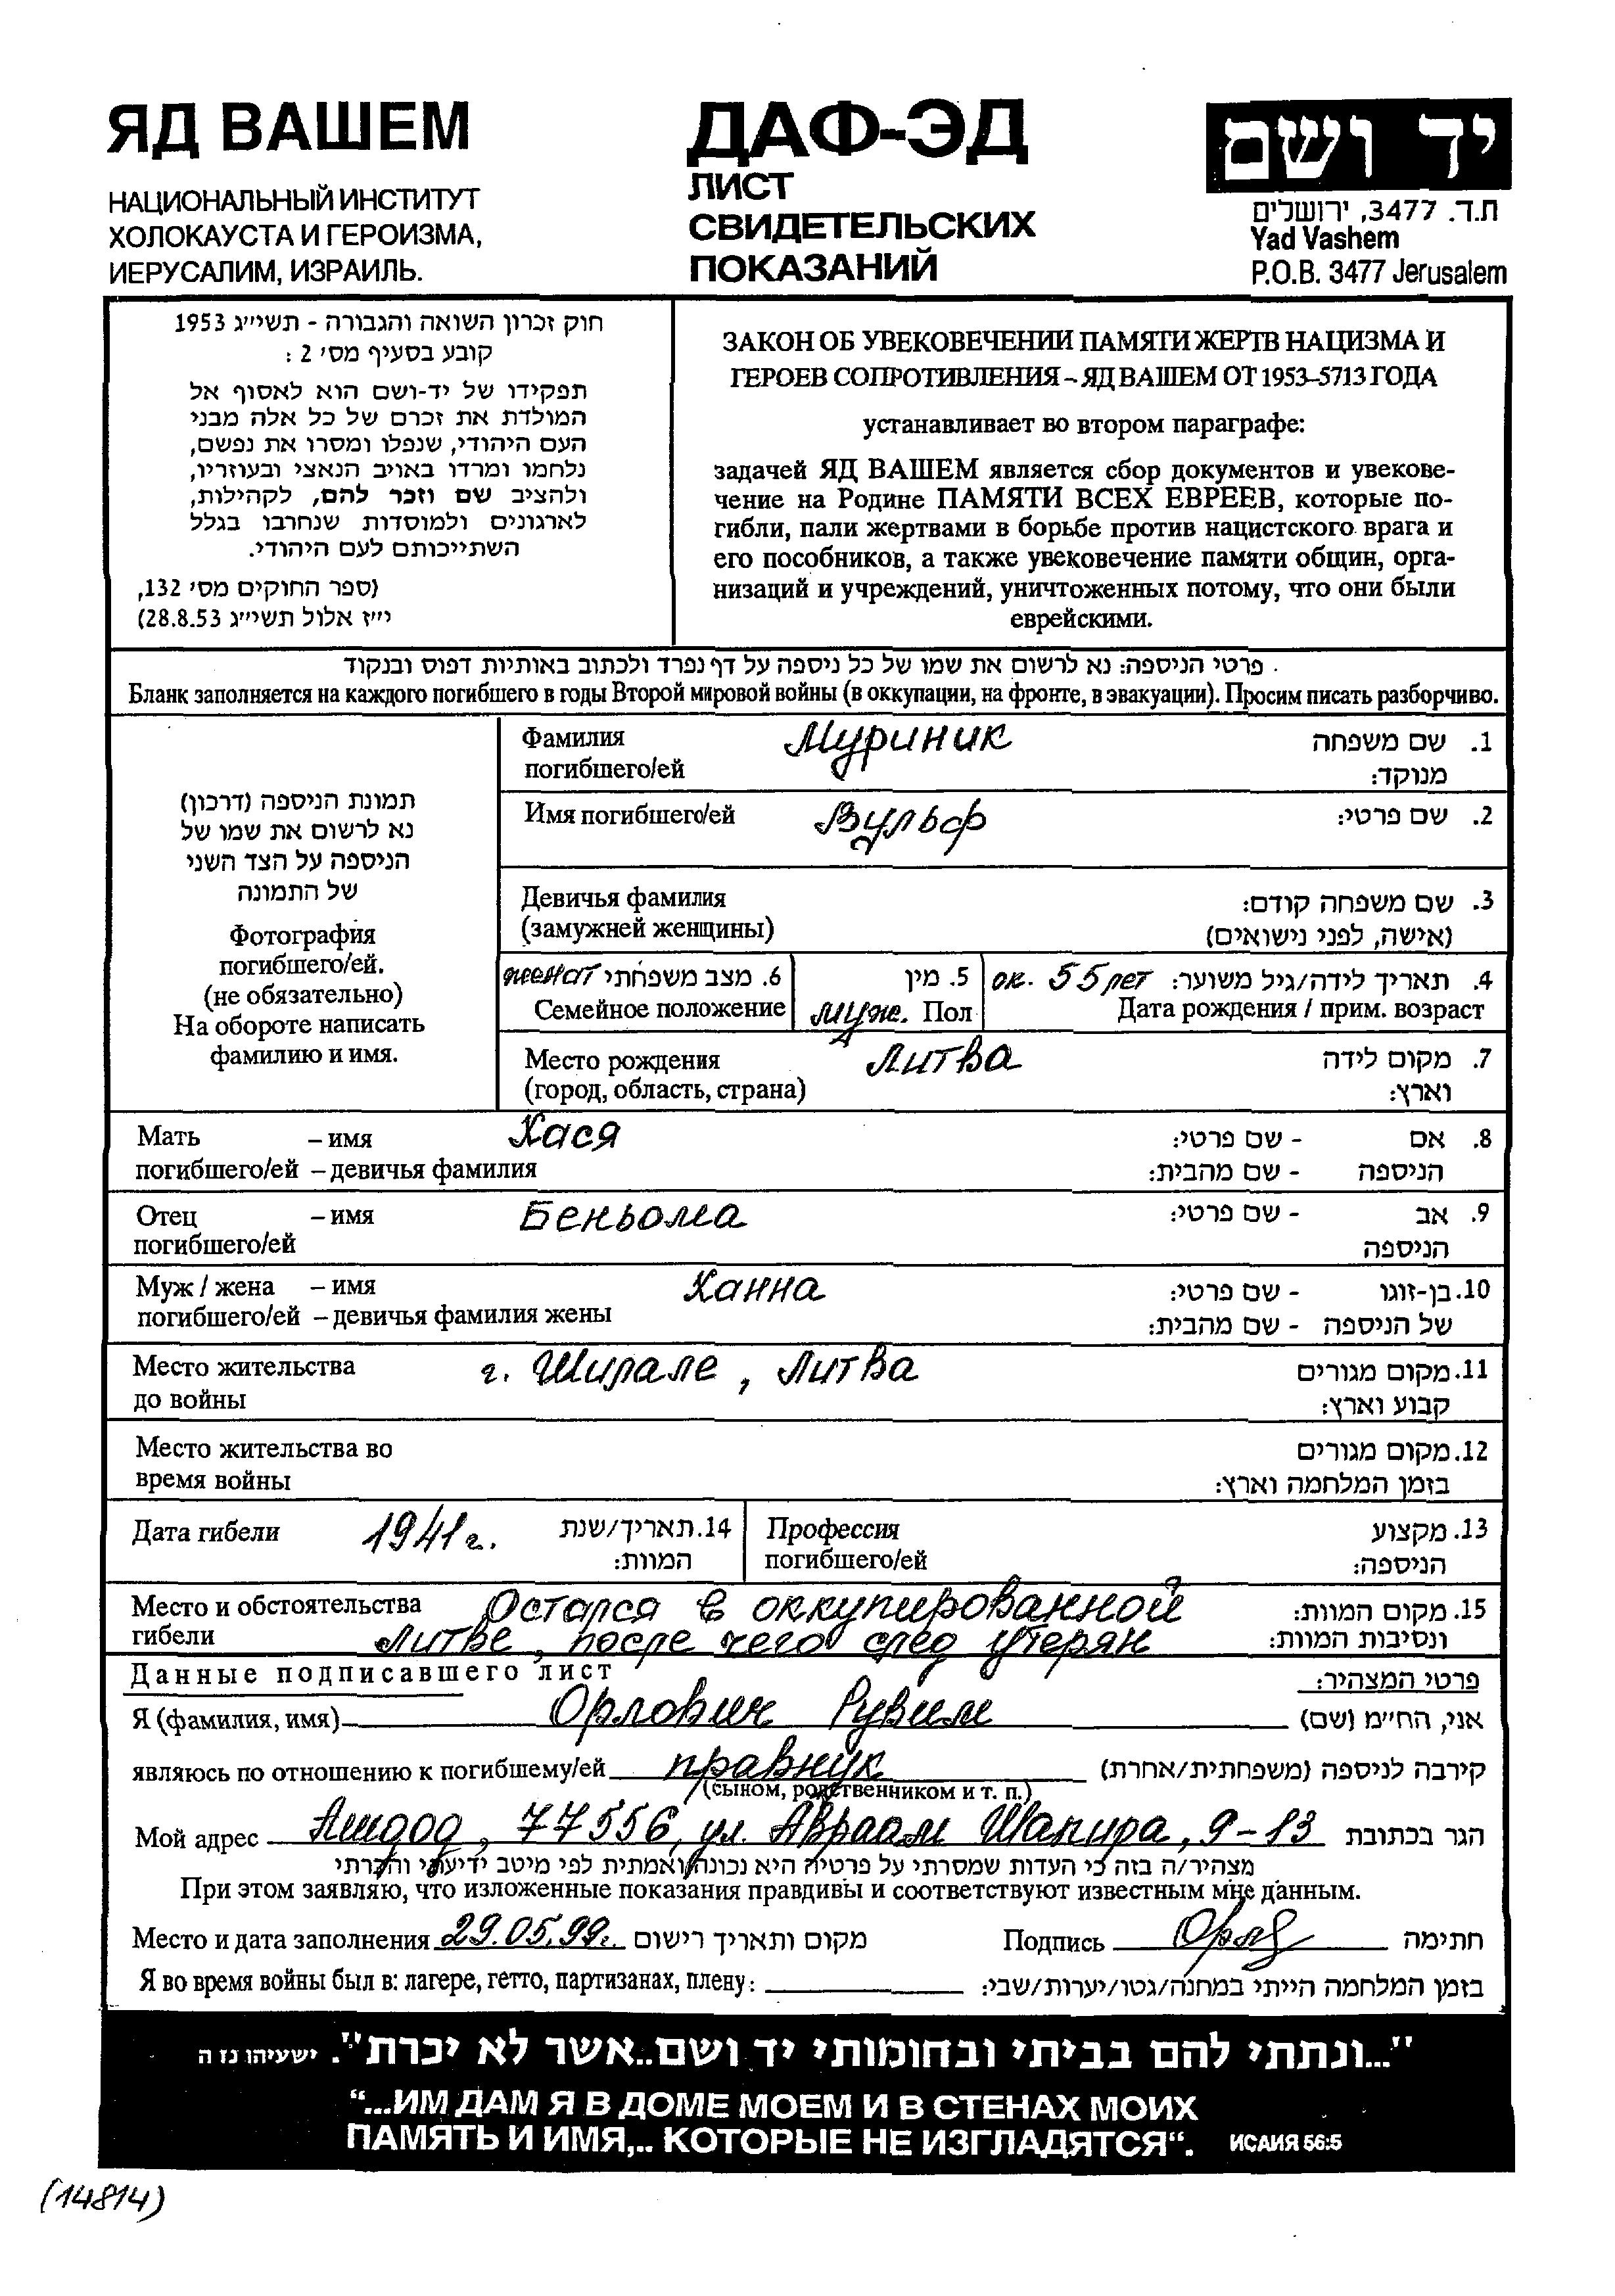 ЯД ВАШЕМ
НАЦИОНАЛЬНЫЙ ИНСТИТУТ
ХОЛОКАУСТА И ГЕРОИЗМА,
ИЕРУСАЛИМ, ИЗРАИЛЬ.
ДАФ-ЭД
ЛИСТ
СВИДЕТЕЛЬСКИХ
ПОКАЗАНИЙ
יד ושם
ת.ד. 3477, ירושלים
Yad Vashem
P.O.B. 3477 Jerusalem
חוק זכרון השואה והגבורה - תשי״ג 1953
קובע בסעיף מס׳ 2 :
תפקידו של יד-ושם הוא לאסוף אל
המולדת את זכרם של כל אלה מבני
העם היהודי, שנפלו ומסרו את נפשם,
נלחמו ומרדו באויב הנאצי ובעוזריו,
ולהציב שם וזכר להם, לקהילות,
לארגונים ולמוסדות שנחרבו בגלל
השתייכותם לעם היהודי.
(ספר החוקים מס׳ 132,
י״ז אלול תשי״ג 28.8.53)
ЗАКОН ОБ УВЕКОВЕЧЕНИИ ПАМЯТИ ЖЕРТВ НАЦИЗМА И
ГЕРОЕВ СОПРОТИВЛЕНИЯ – ЯД ВАШЕМ ОТ 1953–5713 ГОДА
устанавливает во втором параграфе:
задачей ЯД ВАШЕМ является сбор документов и увекове-
чение на Родине ПАМЯТИ ВСЕХ ЕВРЕЕВ, которые по-
гибли, пали жертвами в борьбе против нацистского врага и
его пособников, а также увековечение памяти общин, орга-
низаций и учреждений, уничтоженных потому, что они были
еврейскими.
פרטי הניספה: נא לרשום את שמו של כל ניספה על דף נפרד ולכתוב באותיות דפוס ובנקוד
Бланк заполняется на каждого погибшего в годы Второй мировой войны (в оккупации, на фронте, в эвакуации). Просим писать разборчиво.
תמונת הניספה (דרכון)
נא לרשום את שמו של
הניספה על הצד השני
של התמונה
Фотография
погибшего/ей.
(не обязательно)
На обороте написать
фамилию и имя.
Фамилия Муриник 1. שם משפחה
погибшего/ей מנוקד:
Имя погибшего/ей Вульф 2. שם פרטי:
Девичья фамилия 3. שם משפחה קודם:
(замужней женщины) (אישה, לפני נישואים)
женат 6. מצב משפחתי 5. מין ок. 55 лет 4. תאריך לידה/גיל משוער:
Семейное положение муж. Пол Дата рождения / прим. возраст
Место рождения Литва 7. מקום לידה
(город, область, страна) וארץ:
Мать – имя Хася 8. אם - שם פרטי:
погибшего/ей – девичья фамилия הניספה - שם מהבית:
Отец – имя Беньома 9. אב - שם פרטי:
погибшего/ей הניספה
Муж / жена – имя Ханна 10. בן-זוגו - שם פרטי:
погибшего/ей – девичья фамилия жены של הניספה - שם מהבית:
Место жительства г. Шилале, Литва 11. מקום מגורים
до войны קבוע וארץ:
Место жительства во 12. מקום מגורים
время войны בזמן המלחמה וארץ:
Дата гибели 1941 г. 14. תאריך/שנת Профессия 13. מקצוע
המוות: погибшего/ей הניספה:
Место и обстоятельства Остался в оккупированной 15. מקום המוות:
гибели Литве, после чего след утерян ונסיבות המוות:
Данные подписавшего лист פרטי המצהיר:
Я (фамилия, имя) Орлович Рувим אני, הח״מ (שם)
являюсь по отношению к погибшему/ей правнук קירבה לניספה (משפחתית/אחרת)
(сыном, родственником и т. п.)
Мой адрес Ашдод, 77556, ул. Авраам Шапира, 9-13 הגר בכתובת
מצהיר/ה בזה כי העדות שמסרתי על פרטיה היא נכונה ואמתית לפי מיטב ידיעתי והכרתי
При этом заявляю, что изложенные показания правдивы и соответствуют известным мне данным.
Место и дата заполнения 29.05.99г. מקום ותאריך רישום Подпись חתימה
Я во время войны был в: лагере, гетто, партизанах, плену: בזמן המלחמה הייתי במחנה/גטו/יערות/שבי:
"...ונתתי להם בביתי ובחומותי יד ושם..אשר לא יכרת". ישעיהו נז ה
“...ИМ ДАМ Я В ДОМЕ МОЕМ И В СТЕНАХ МОИХ
ПАМЯТЬ И ИМЯ,.. КОТОРЫЕ НЕ ИЗГЛАДЯТСЯ“. ИСАИЯ 56:5
(14814)